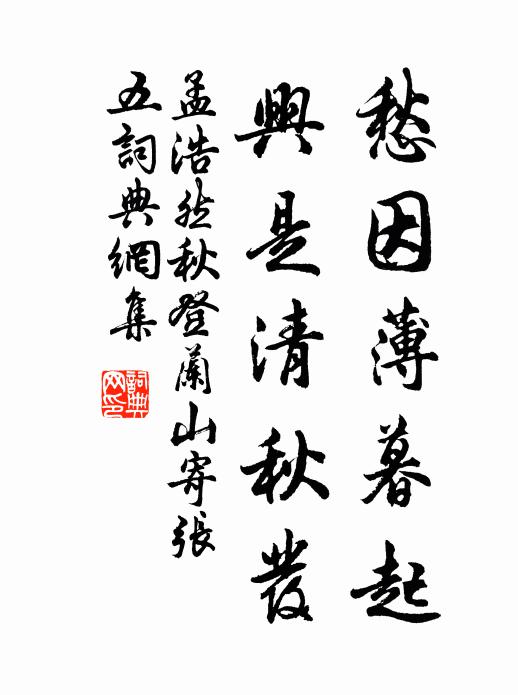 愁因薄暮起
興是清秋發
孟浩然秋登蘭山寄張
五詞典網集
詞典
网印